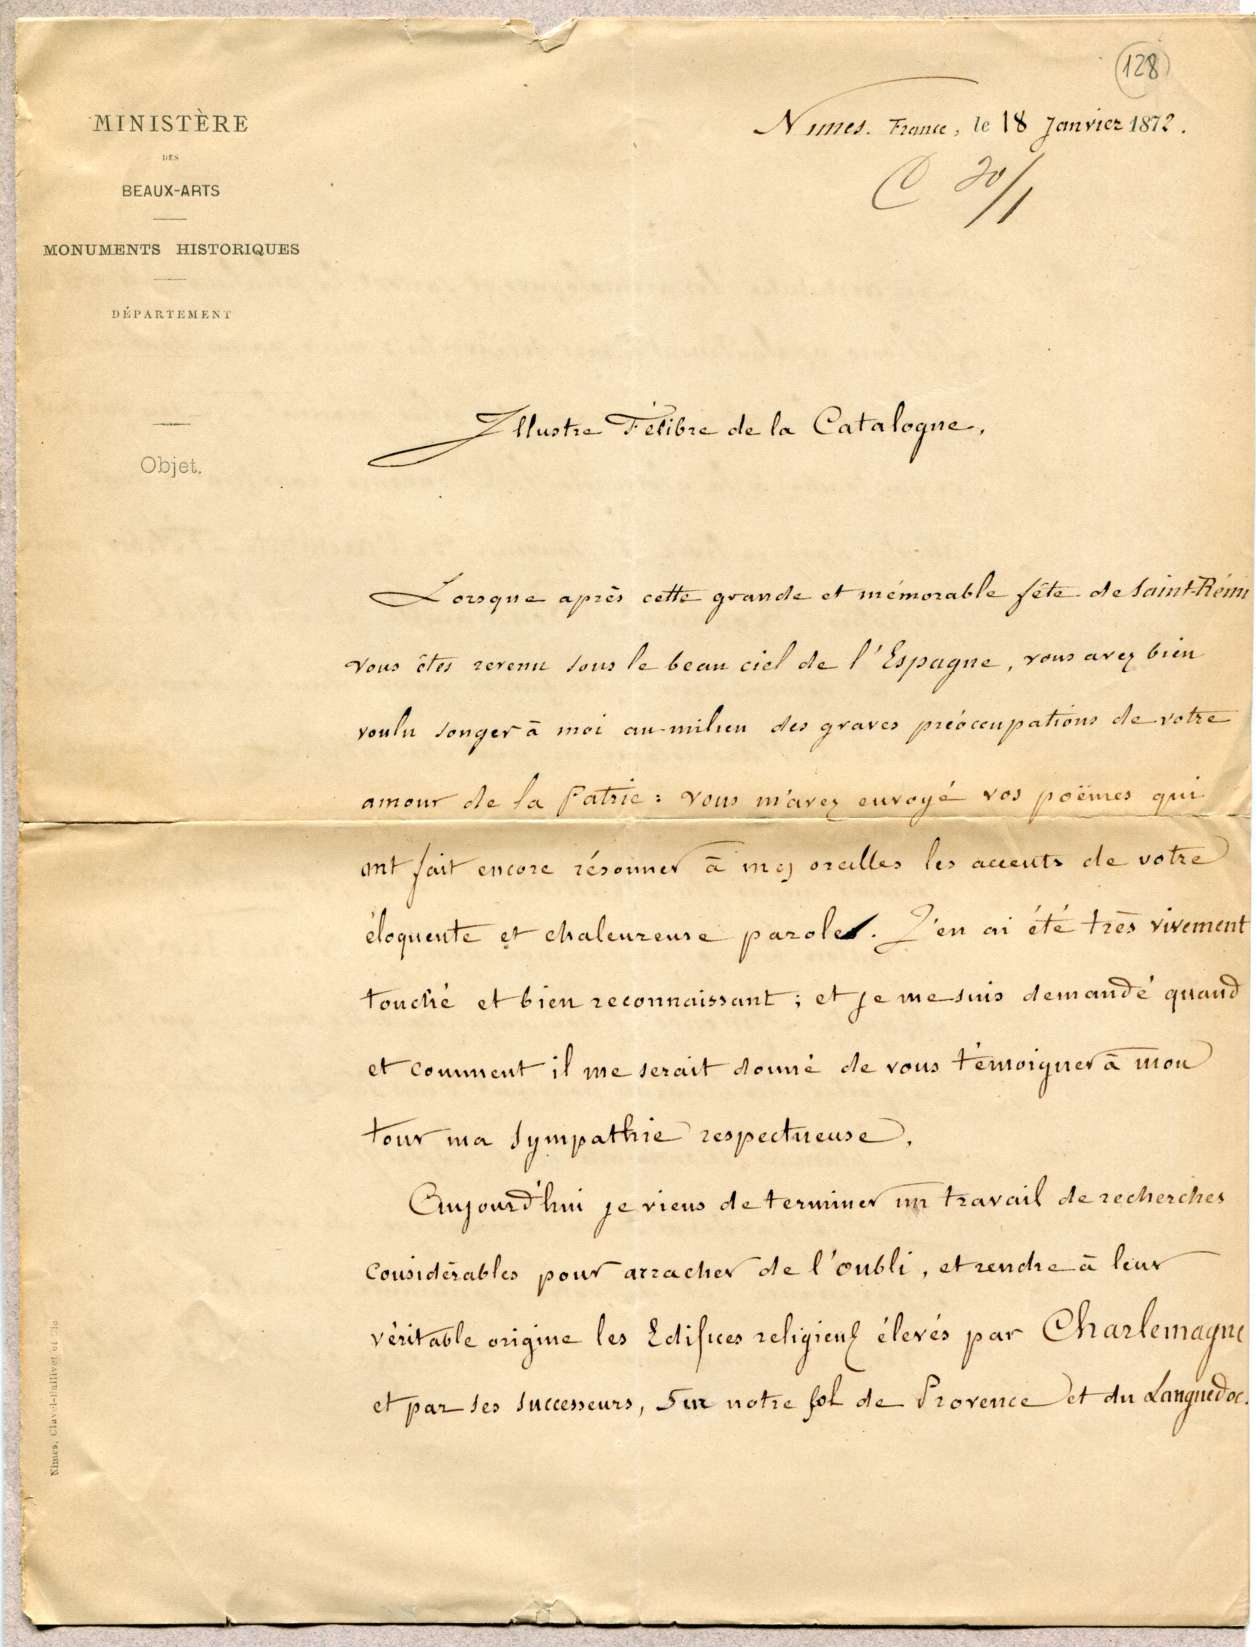 128
MINISTÈRE
DES
BEAUX-ARTS
MONUMENTS HISTORIQUES
DÉPARTEMENT
Objet.
Nimes. France, le 18 Janvier 1872.
C 20/1
Illustre Félibre de la Catalogne,
Lorsque après cette grande et mémorable fête de Saint-Rémi
vous êtes revenu sous le beau ciel de l'Espagne, vous avez bien
voulu songer à moi au milieu des graves préoccupations de votre
amour de la Patrie : vous m'avez envoyé vos poëmes qui
ont fait encore résonner à mes oreilles les accents de votre
éloquente et chaleureuse parole. J'en ai été très vivement
touché et bien reconnaissant ; et je me suis demandé quand
et comment il me serait donné de vous témoigner à mon
tour ma sympathie respectueuse.
Aujourd'hui je viens de terminer un travail de recherches
considérables pour arracher de l'oubli, et rendre à leur
véritable origine les Edifices religieux élevés par Charlemagne
et par ses successeurs, sur notre sol de Provence et du Languedoc.
Nimes, Clavel-Ballivet et Cie